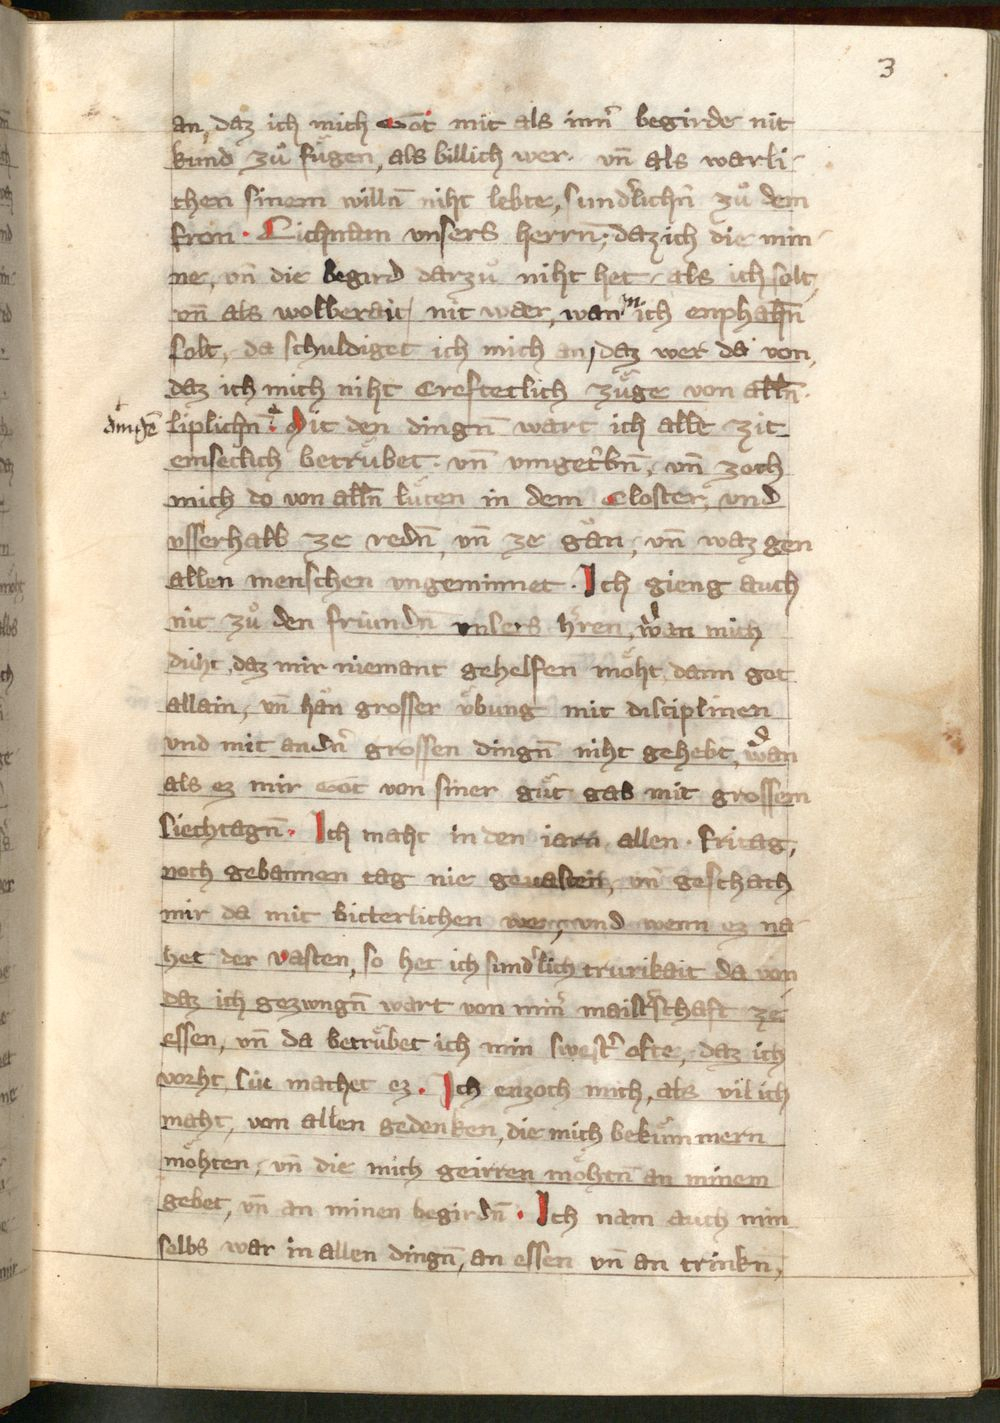 3
an, daz ich mich Got mit als inn̄ begirde nit
kund zuͦ fuͤgen, als billich wer. vn̄ als warli-
chen sinem willn̄ niht lebte, sundͬlichn̄ zuͦ dem
fron · Lichnam vnsers herrn̄; daz ich die min-
ne, vn̄ die begird darzuͦ niht het, als ich solt,
vn̄ als wolberait nit waer, wan ich enphahn̄
solt, da schuldiget ich mich an, daz wer da von,
daz ich mich niht creftetlich zuͤge von alln̄
liplichn̄ : Mit den dingn̄ wart ich alle zit
emseclich betruͤbet. vn̄ vmgetͬbn̄, vn̄ zoch
mich do von alln̄ luͤten in dem Closter, vnd
vsserhalb ze redn̄, vn̄ ze gan, vn̄ waz gen
allen menschen vngeminnet. Ich gieng auch
nit zuͦ den friundn̄ vnsers hͬren, wan mich
duht, daz mir niemant gehelfen moͤht, dann got
allain, vn̄ han grosser uͤbung mit disciplinen
vnd mit andn̄ grossen dingn̄ niht gehebt, wan
als ez mir Got von siner guͤt gab mit grossem
siechtagn̄. Ich maht in den iarn allen · fritag,
noch gebannen tag nie geuasten, vn̄ geschach
mir da mit bitterlichen we, vnd wenn ez na-
het der vasten, so het ich sundͬlich trurikait da von
daz ich gezwngn̄ wart von minͬ maistͬschaft ze
essen, vn̄ da betruͤbet ich min swestͬ ofte, daz ich
vorht, sue machet ez. Ich enzoch mich, als vil ich
maht, von allen gedenken, die mich bekuͤmmern
moͤhten, vn̄ die mich geirren moͤhtn̄ an minem
gebet, vn̄ an minen begirdn̄. Ich nam auch min
selbs war in allen dingn̄, an essen vn̄ an trinkn̄,